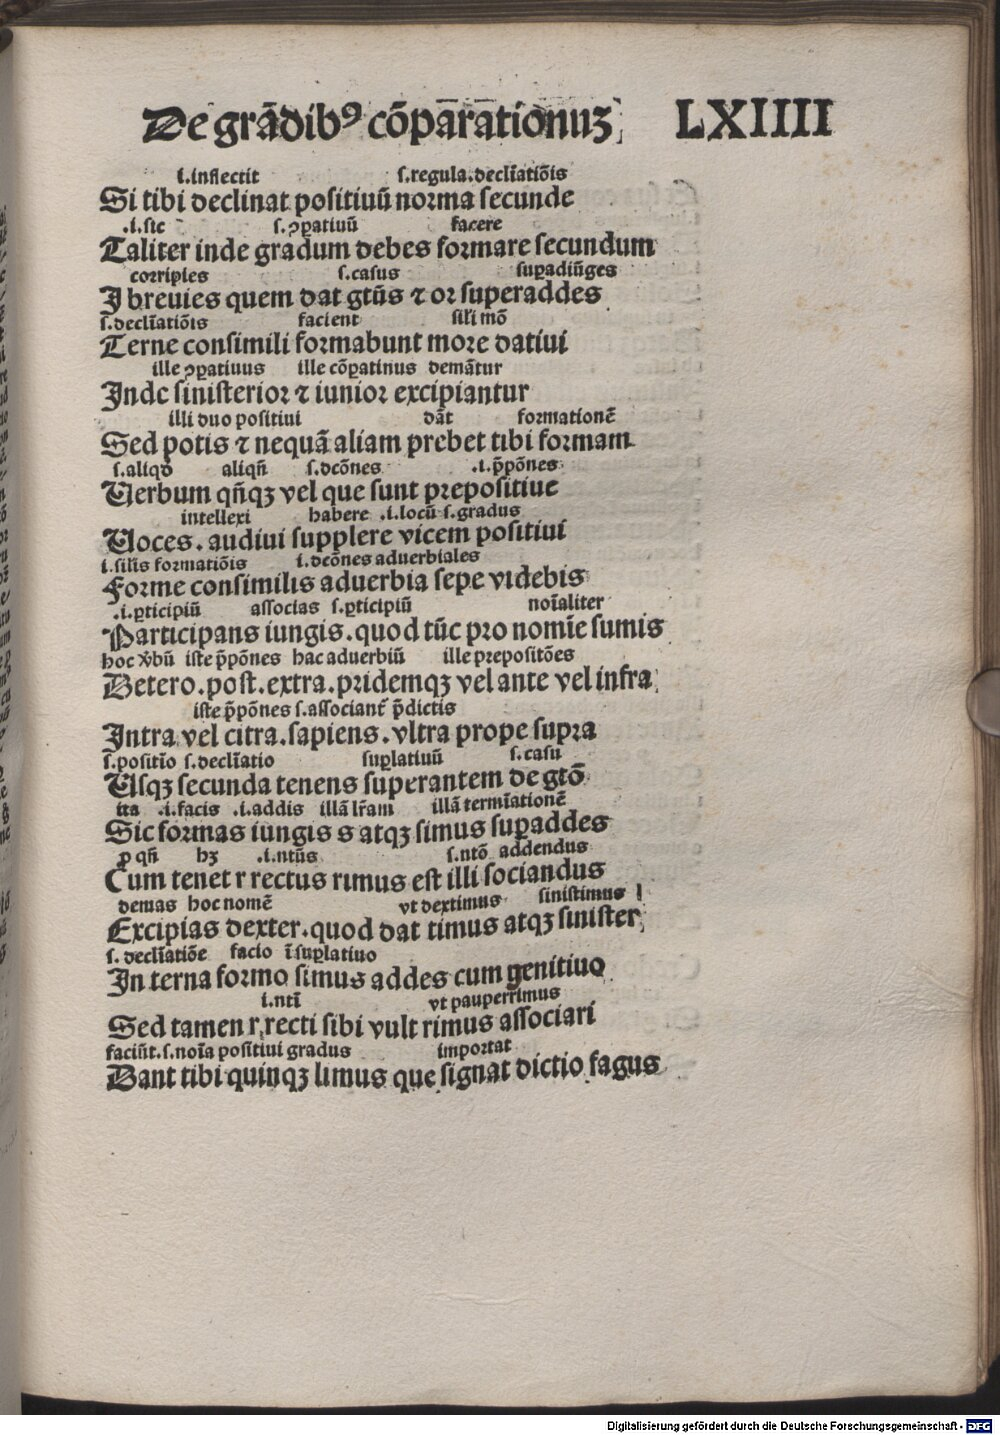 De grādibꝰ cōpārātionuꝫ LXIIII
i.inflectit s.regula.declīatiōis
Si tibi declinat positiuū norma secunde
.i.sic s.ↄꝑatiuū facere
Taliter inde gradum debes formare secundum
corripies s.casus suꝑadiūges
I breuies quem dat gtūs ⁊ or superaddes
s.declīatiōis facient sili mō
Terne consimili formabunt more datiui
ille ↄꝑatiuus ille cōꝑatinus demātur
Inde sinisterior ⁊ iunior excipiantur
illi duo positiui dāt formationē
Sed potis ⁊ nequā aliam prebet tibi formam
s.aliqd aliqn̄ s.dcōnes .i.p̄pōnes
Uerbum qn̄qꝫ vel que sunt prepositiue
intellexi habere .i.locū s.gradus
Uoces. audiui supplere vicem positiui
i.silis formatiōis i.dcōnes aduerbiales
Forme consimilis aduerbia sepe videbis
.i.ꝑticipiū associas s.ꝑticipiū noīaliter
Participans iungis.quod tūc pro nomīe sumis
hoc v̄bū iste p̄pōnes hac aduerbiū ille prepositōes
Detero.post.extra.pridemqꝫ vel ante vel infra
iste p̄pōnes s.associant̄ p̄dictis
Intra vel citra.sapiens.vltra prope supra
s.positīo s.declīatio suꝑlatiuū s.casu
Usqꝫ secunda tenens superantem de gtō
ita .i.facis .i.addis illā lr̄am illā termīationē
Sic formas iungis s atqꝫ simus suꝑaddes
ꝓ qn̄ hꝫ .i.ntūs s.ntō addendus
Cum tenet r rectus rimus est illi sociandus
demas hoc nomē vt deximus sinistimus
Excipias dexter.quod dat timus atqꝫ sinister
s.declīatiōe facio ī suꝑlatiuo
In terna formo simus addes cum genitiuo
i.ntī vt pauperrimus
Sed tamen r,recti sibi vult rimus associari
faciūt.s.noīa positiui gradus importat
Dant tibi quinqꝫ limus que signat dictio fagus
Digitalisierung gefördert durch die Deutsche Forschungsgemeinschaft - DFG